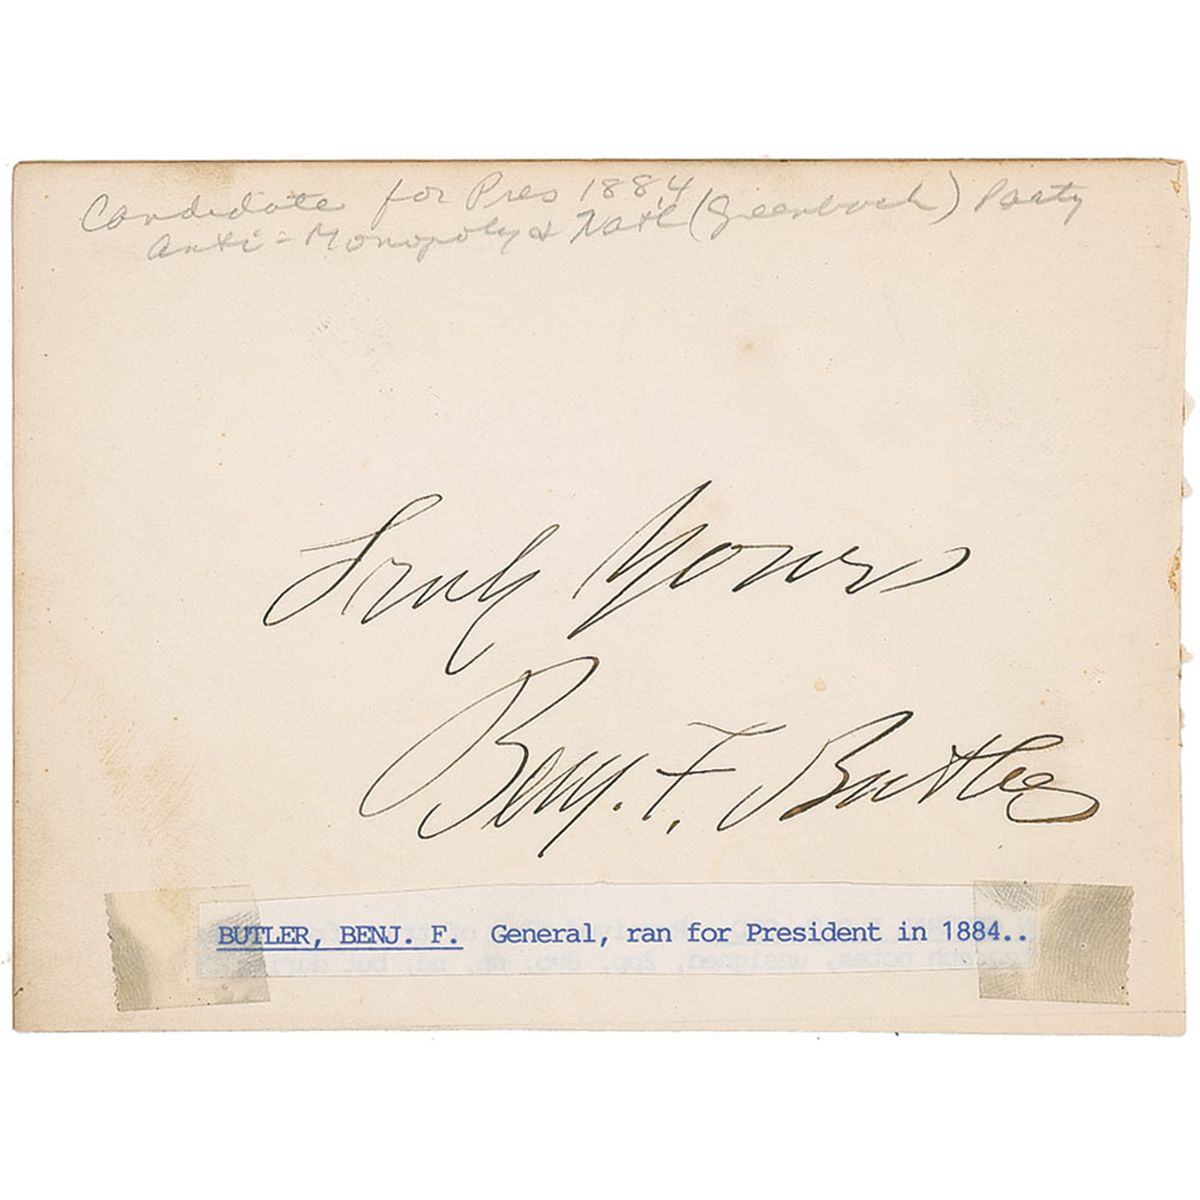 Candidate for Pres 1884
Anti-Monopoly & Natl (Greenback) Party
Truly Yours
Benj. F. Butler
BUTLER, BENJ. F. General, ran for President in 1884..